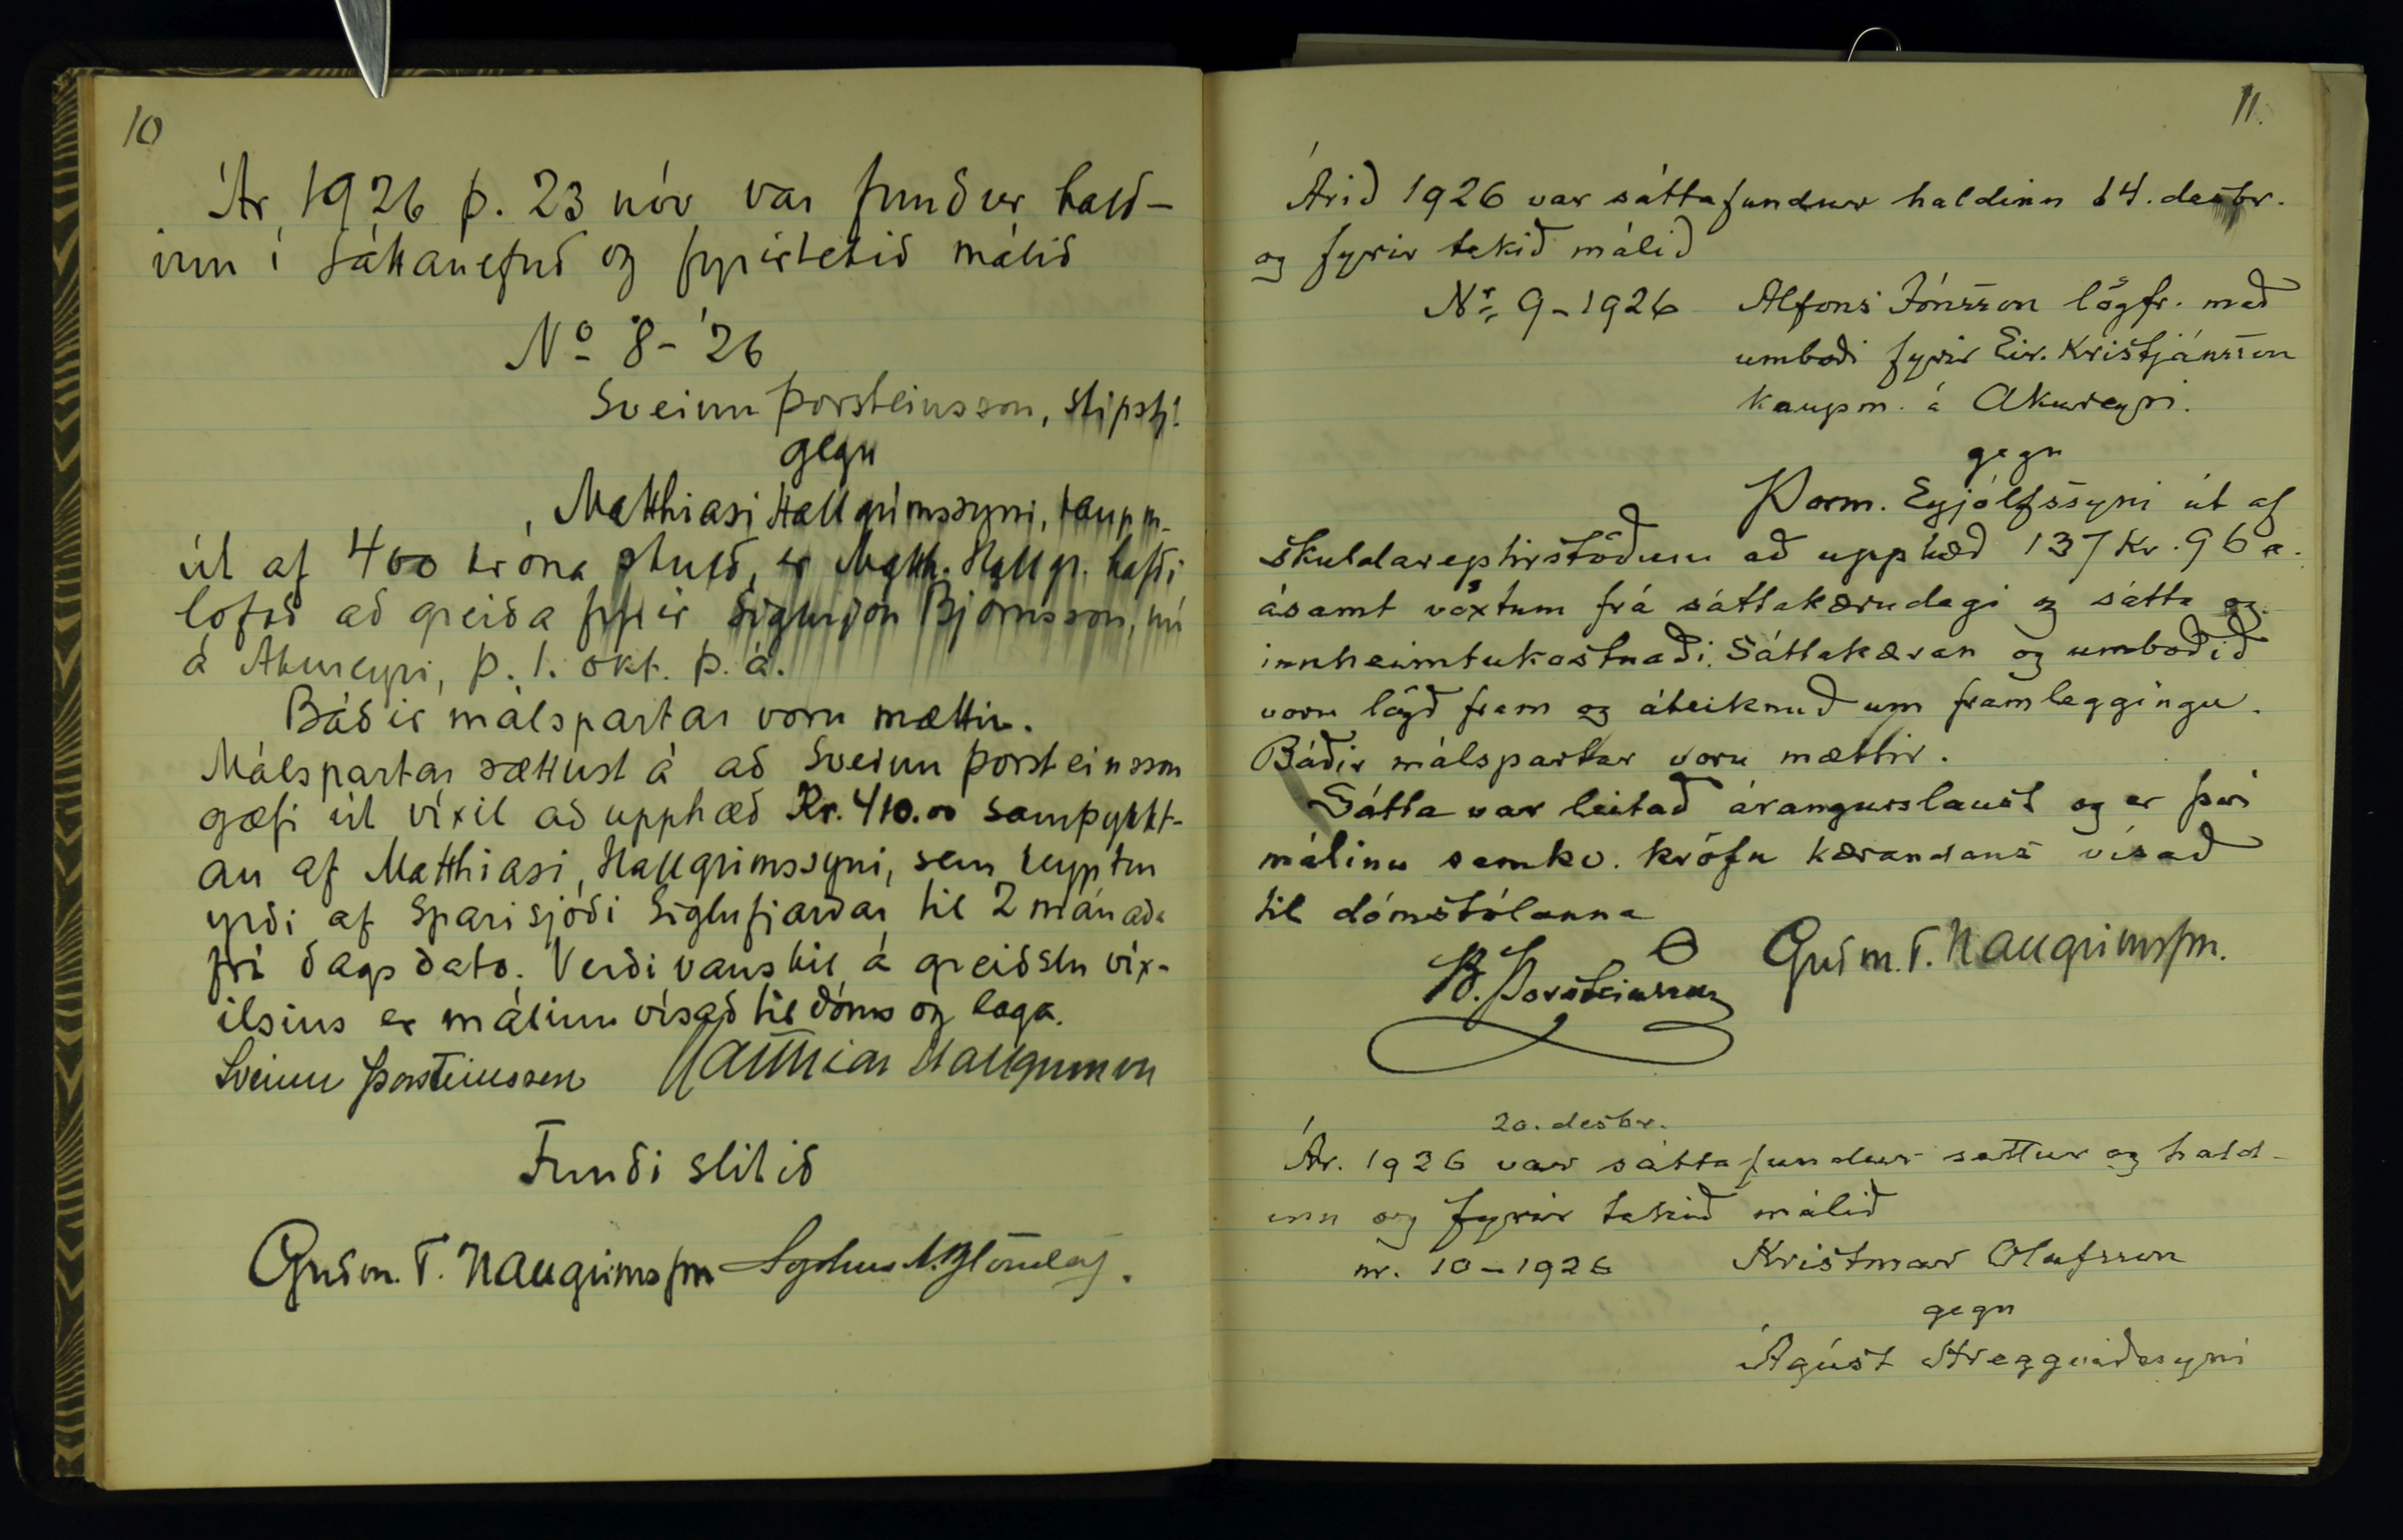 10
Ár 1926 þ. 23 nóv var fundur hald-
inn í sáttanefnd og fyrirtekið málið
No 8-'26
Sveinn Þorsteinsson, skipstj.
gegn
Matthiasi Hallgrímssyni, kaupm.
út af 400 króna skuld, er Matth. Hallgr. hafði
lofað að greiða fyrir Sigurjón Björnsson, nú
á Akureyri, þ. 1. okt. þ. á.
Báðir málspartar voru mættir.
Málspartar sættust á að Sveinn Þorsteinsson
gæfi út víxil að upphæð Kr. 410.00 samþykkt-
an af Matthiasi Hallgrimssyni, sem keyptur
yrði af Sparisjóði Siglufjarðar til 2 mánaða
frá dags dato. Verði vanskil á greiðslu víx-
ilsins er málinu vísað til dóms og laga.
Sveinn Þorsteinsson Matthias Hallgrimsson
Fundi slitið
Guðm. T. Hallgrimsson
11.
Árið 1926 var sáttafundur haldinn 14. desbr.
og fyrir tekið málið
Nr. 9-1926 Alfons Jónsson lögfr. með
umboði fyrir Eir. Kristjánsson
kaupm. á Akureyri.
gegn
Þorm. Eyjólfssyni út af
skuldareptirstöðum að upphæð 137 Kr. 96 a.
ásamt vöxtum frá sáttakærudegi og sátta og
innheimtukostnaði. Sáttakæran og umboðið
voru lögð fram og áteiknuð um framleggingu.
Báðir málspartar voru mættir.
Sátta var leitað árangurslaust og er því
málinu samkv. kröfu kærandans vísað
til dómstólanna
B. Þorsteinsson Guðm. T. Hallgrimsson.
20. desbr.
Ár. 1926 var sáttafundur settur og hald-
inn og fyrir tekið málið
nr. 10-1926 Kristmar Olafsson
gegn
Ágúst Hreggviðssyni